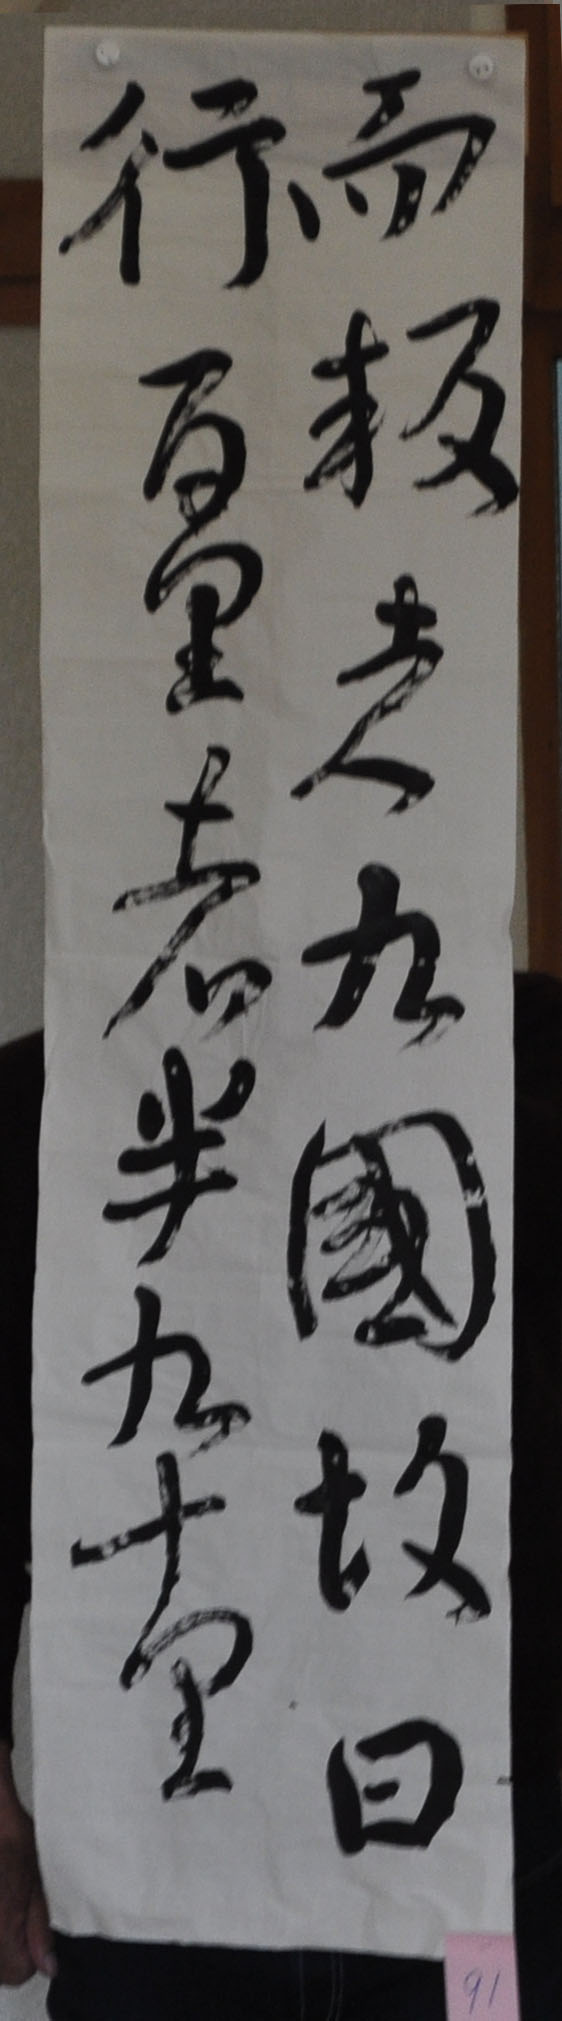 而叛者九國故曰
行百里者半九十里
91